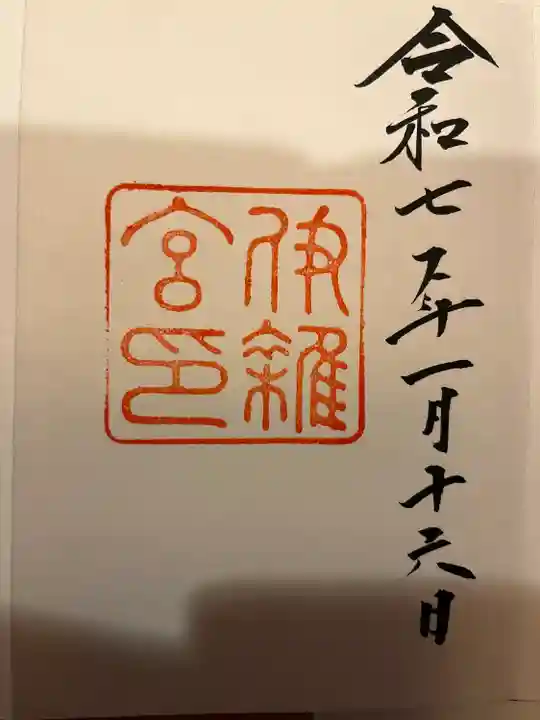 令和七年一月十六日
伊雜
宮印